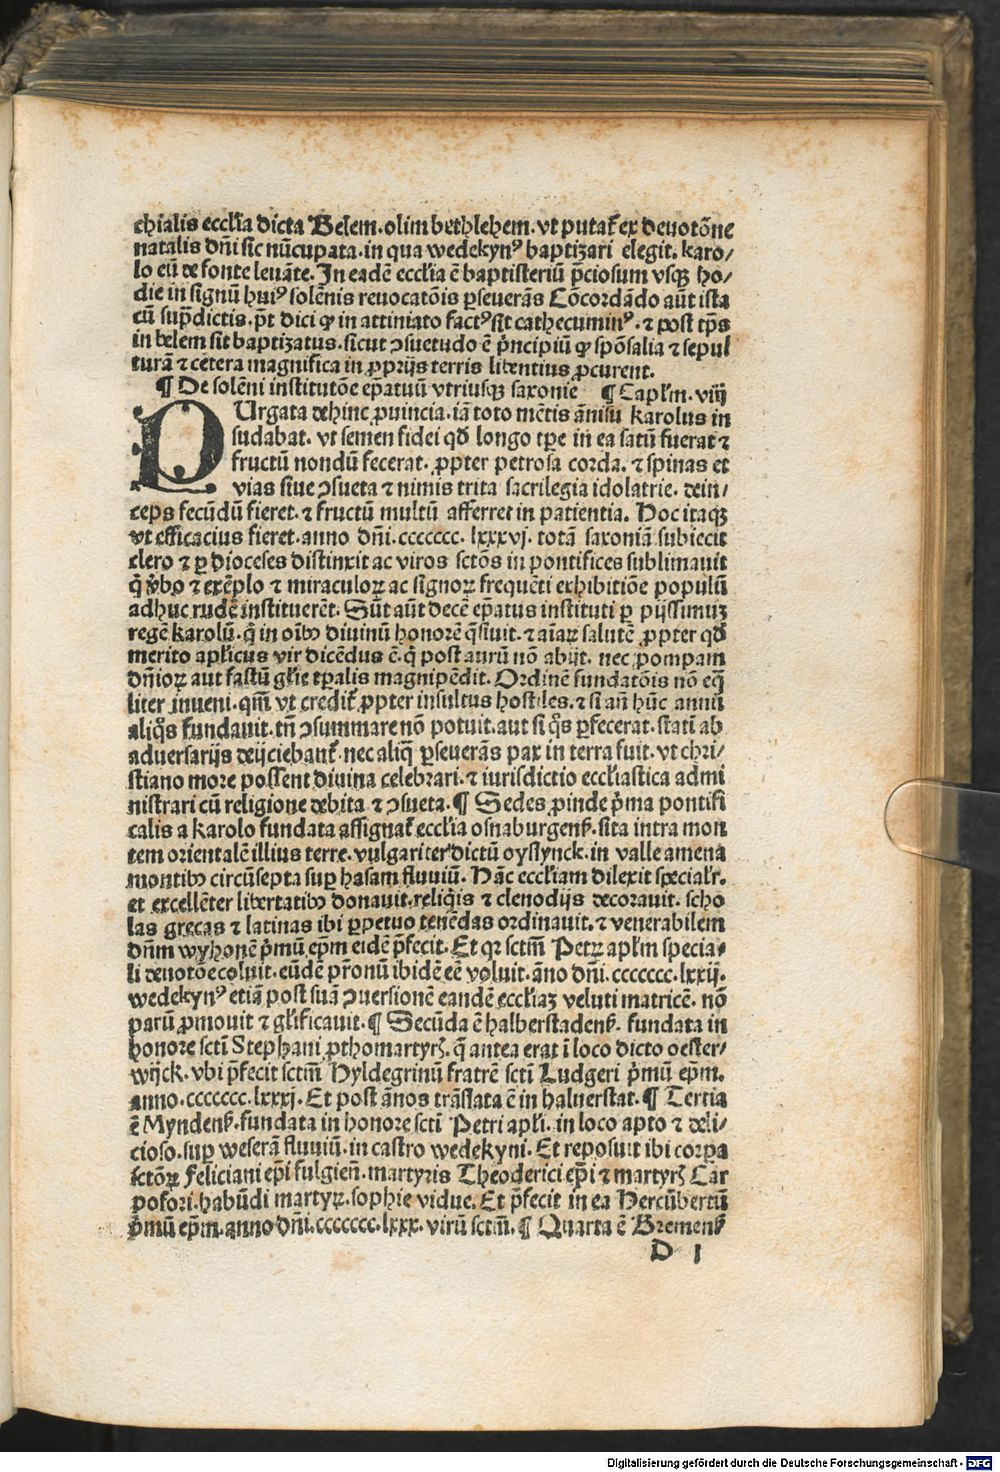 chialis eccl'ia dicta Belem. olim bethlehem. vt putat̃ ex deuotõne
natalis dñi sic nũcupata. in qua wedekynꝰ baptizari elegit. karo/
lo eũ de fonte leuãte. In eadẽ eccl'ia ẽ baptisteriũ p̃ciosum vsqꝫ ho/
die in signũ huiꝰ solẽnis reuocatõis ꝑseuerãs Cõcordãdo aũt ista
cũ sup̃dictis. põt dici ꝙ in attiniato factꝰ sit cathecuminꝰ. ⁊ post tp̃s
in belem sit baptizatus. sicut ↄsuetudo ẽ p̃ncipiũ ꝙ spõsalia ⁊ sepul
turã ⁊ cetera magnifica in ꝓprijs terris libentius ꝓcurent.
¶ De solẽni institutõe ep̃atuũ vtriusqꝫ saxonie ¶ Capl'm. viij
PUrgata dehinc ꝓuincia. iã toto mẽtis ãnisu karolus in
sudabat. vt semen fidei qđ longo tp̃e in ea satũ fuerat ⁊
fructũ nondũ fecerat. ꝓpter petrosa corda. ⁊ spinas et
vias siue ↄsueta ⁊ nimis trita sacrilegia idolatrie. dein/
ceps fecũdũ fieret. ⁊ fructũ multũ afferret in patientia. Hoc itaqꝫ
vt efficacius fieret. anno dñi. ccccccc. lxxxvj. totã saxoniã subiecit
clero ⁊ ꝑ dioceses distinxit ac viros sctõs in pontifices sublimauit
q̃ v̾bo ⁊ exẽplo ⁊ miraculoꝝ ac signoꝝ frequẽti exhibitiõe populũ
adhuc rudẽ instituerẽt. Sũt aũt decẽ ep̃atus instituti ꝑ pijssimuꝫ
regẽ karolũ. q̃ in oĩbꝰ diuinũ honorẽ q̃siuit. ⁊ aĩaꝝ salutẽ ꝓpter qđ
merito apl'icus vir dicẽdus ẽ. q̃ post aurũ nõ abijt. nec pompam
dñioꝝ aut fastũ gl'ie tp̃alis magnipẽdit. Ordinẽ fundatõis nõ eq̃
liter inueni. qm̃ vt credit̃ ꝓpter insultus hostiles. ⁊ si añ hũc annũ
aliq̃s fundauit. tñ ↄsummare nõ potuit. aut si q̃s ꝑfecerat. statĩ ab
aduersarijs deijciebant̃. nec aliq̃ ꝑseuerãs pax in terra fuit. vt chri/
stiano more possent diuina celebrari. ⁊ iurisdictio eccl'iastica admi
nistrari cũ religione debita ⁊ ↄsueta. ¶ Sedes ꝓinde p̃ma pontifi
calis a karolo fundata assignat̃ eccl'ia osnaburgenẜ. sita intra mon
tem orientalẽ illius terre. vulgariter dictũ oyslynck. in valle amena
montibꝰ circũsepta suꝑ hasam fluuiũ. Hãc eccl'iam dilexit specialr̃.
et excellẽter libertatibꝰ donauit. reliq̃is ⁊ clenodijs decorauit. scho
las grecas ⁊ latinas ibi ꝑpetuo tenẽdas ordinauit. ⁊ venerabilem
dñm wyhonẽ p̃mũ ep̃m eidẽ p̃fecit. Et qꝛ sctm̃ Petꝝ apl'm specia/
li deuotõe coluit. eũdẽ pr̃onũ ibidẽ eẽ voluit. ãno dñi. ccccccc. lxxij.
wedekynꝰ etiã post suã ↄuersionẽ eandẽ eccl'iaꝫ veluti matricẽ. nõ
parũ ꝓmouit ⁊ gl'ificauit. ¶ Secũda ẽ halberstadenẜ. fundata in
honore sctĩ Stephani ꝓthomartyrꝭ. q̃ antea erat ĩ loco dicto oester/
wijck. vbi p̃fecit sctm̃ Hyldegrinũ fratrẽ sctĩ Ludgeri p̃mũ ep̃m.
anno. ccccccc. lxxxj. Et post ãnos trãslata ẽ in haluerstat. ¶ Tertia
ẽ Myndenẜ. fundata in honore sctĩ Petri apl'i. in loco apto ⁊ deli/
cioso. suꝑ weserã fluuiũ. in castro wedekyni. Et reposuit ibi corꝑa
sctõꝝ feliciani ep̃i fulgieñ. martyris Theoderici ep̃i ⁊ martyrꝭ Car
pofori. habũdi martyꝝ. sophie vidue. Et p̃fecit in ea Hercũbertũ
p̃mũ ep̃m. anno dñi. ccccccc. lxxx. virũ sctm̃. ¶ Quarta ẽ Bremenẜ
D 1
Digitalisierung gefördert durch die Deutsche Forschungsgemeinschaft - DFG